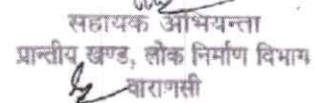 सहायक अभियन्ता
प्रान्तीय खण्ड, लोक निर्माण विभाग
वाराणसी